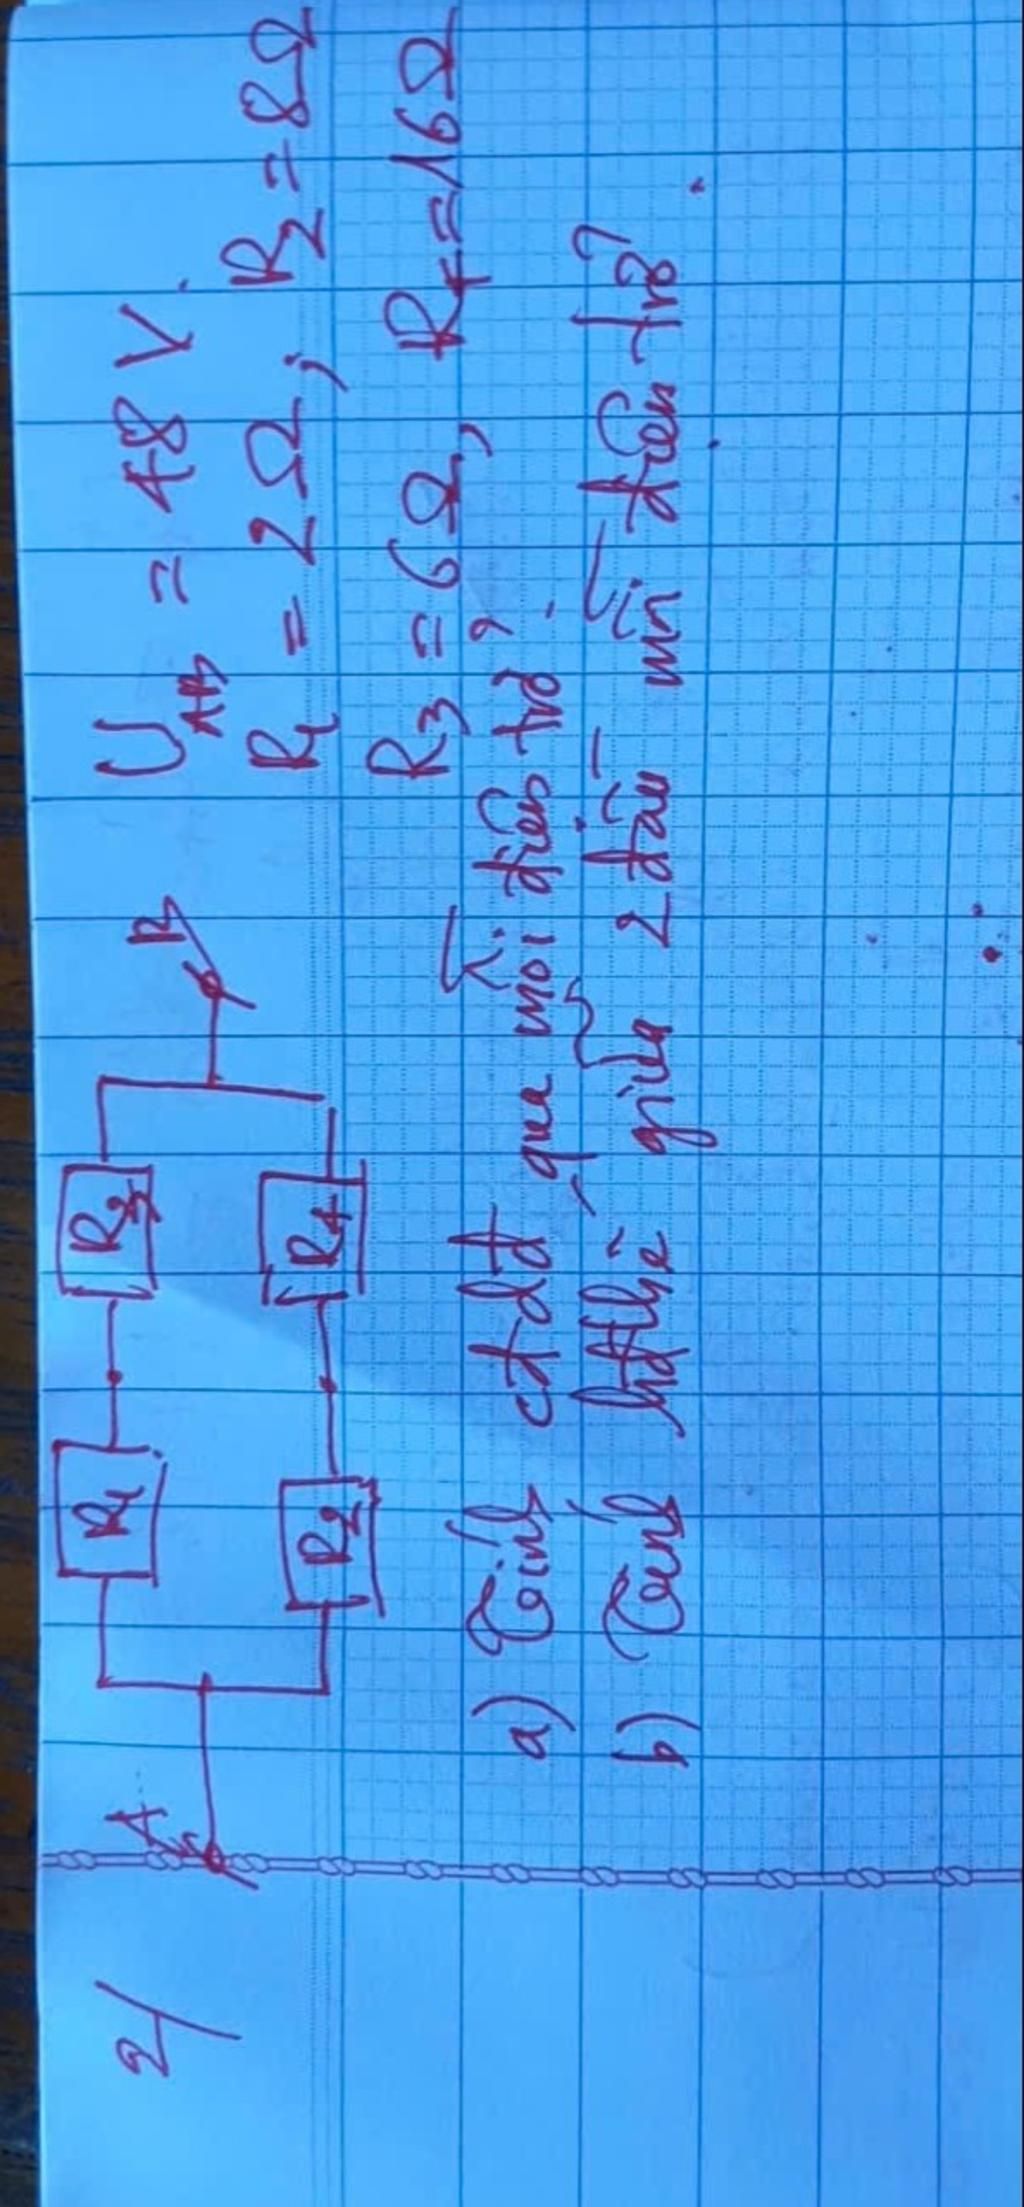 2/
A
R1
R3
B
R2
R4
UAB = 48 V.
R1 = 2Ω; R2 = 8Ω
R3 = 6Ω, R4 = 16Ω
a) Tính cđdđ qua mỗi điện trở?
b) Tính hđthế giữa 2 đầu mỗi điện trở?